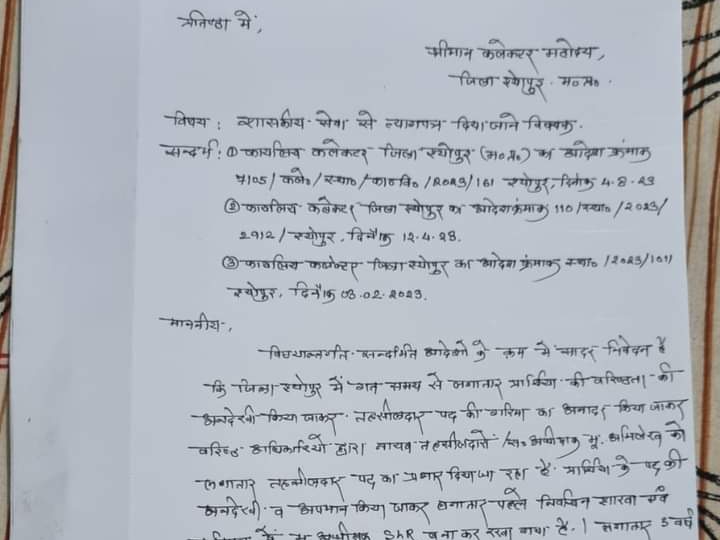 प्रतिष्ठा में,
श्रीमान कलेक्टर महोदय,
जिला श्योपुर म०प्र०.
विषय: शासकीय सेवा से त्यागपत्र दिया जाने विषयक.
सन्दर्भ: ① कार्यालय कलेक्टर जिला श्योपुर (म०प्र०) का आदेश क्रमांक
/कले०/स्था०/का०वि०/2023/161 श्योपुर, दिनांक 4.8.23
② कार्यालय कलेक्टर जिला श्योपुर का आदेश क्रमांक 110/स्था०/2023/
2912/श्योपुर, दिनाँक 12.4.23.
③ कार्यालय कलेक्टर जिला श्योपुर का आदेश क्रमांक स्था०/2023/101/
श्योपुर, दिनाँक 03.02.2023.
माननीय,
विषयान्तर्गत सन्दर्भित आदेशों के क्रम में सादर निवेदन है
कि जिला श्योपुर में गत समय से लगातार प्रार्थिया की वरिष्ठता की
अनदेखी किया जाकर तहसीलदार पद की गरिमा का अनादर किया जाकर
वरिष्ठ अधिकारियों द्वारा नायब तहसीलदारों/स० अधीक्षक भू. अभिलेख को
लगातार तहसीलदार पद का प्रभार दिया जा रहा है. प्रार्थिया के पद की
अनदेखी व अपमान किया जाकर लगातार पहले निर्वाचन शाखा एवं
में अधीक्षक SLR बना कर रखा गया है. लगातार 5 वर्ष